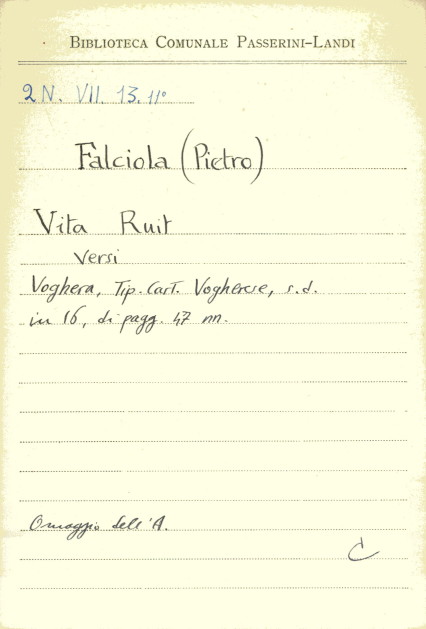 BIBLIOTECA COMUNALE PASSERINI-LANDI
2N. VII. 13. 11°
Falciola (Pietro)
Vita Ruit
Versi
Voghera, Tip. Cart. Vogherese, s.d.
in 16, di pagg. 47 nn.
Omaggio dell'A.
C